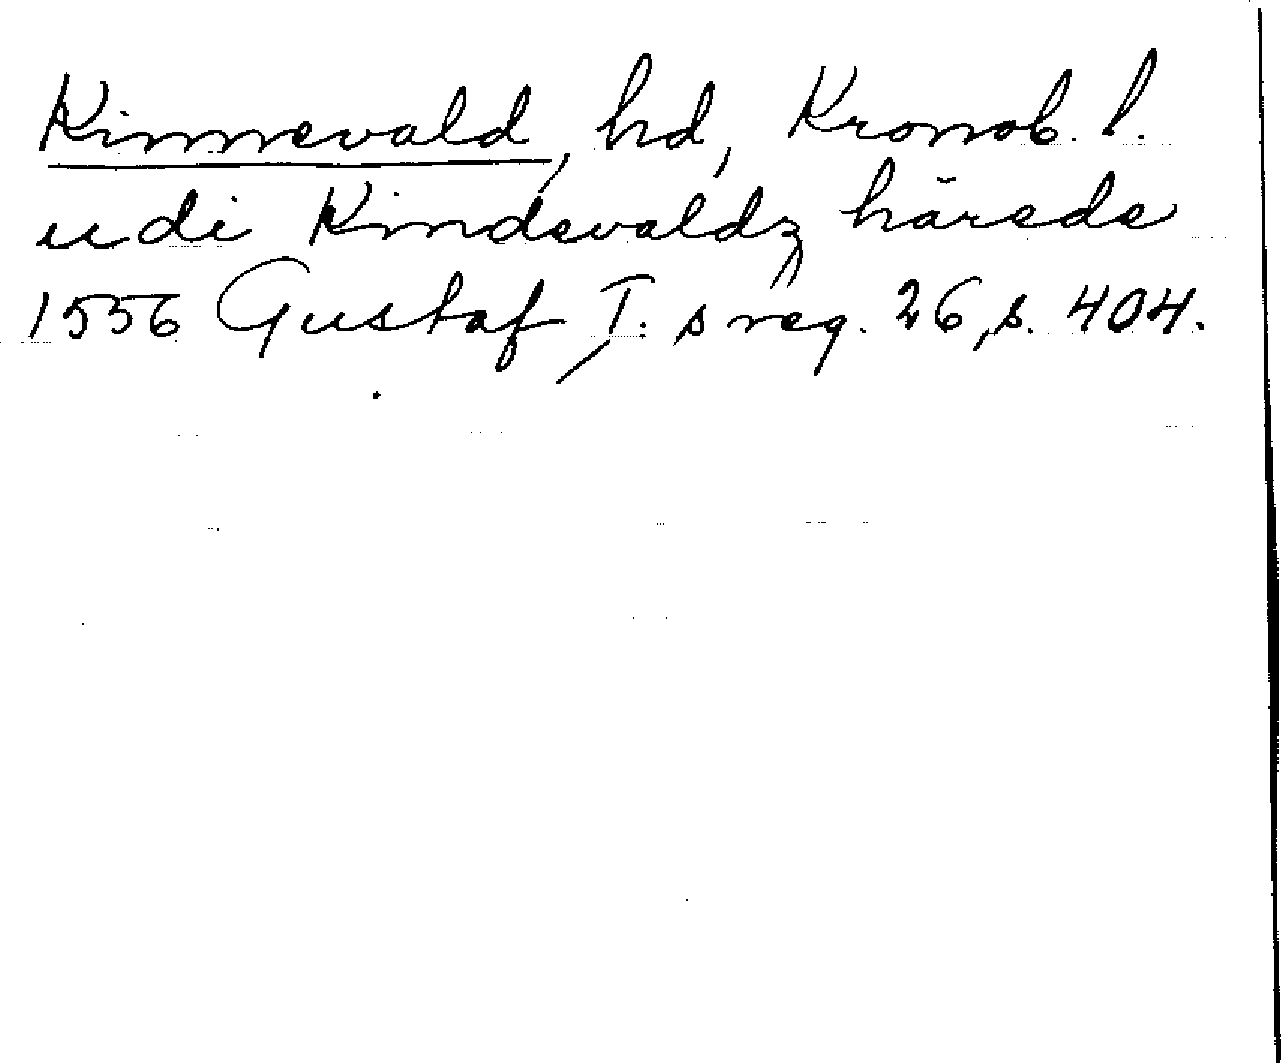 Kinnevald, hd, Kronob. l.
udi Kindevaldz härede
1556 Gustaf I. s reg. 26, s. 404.